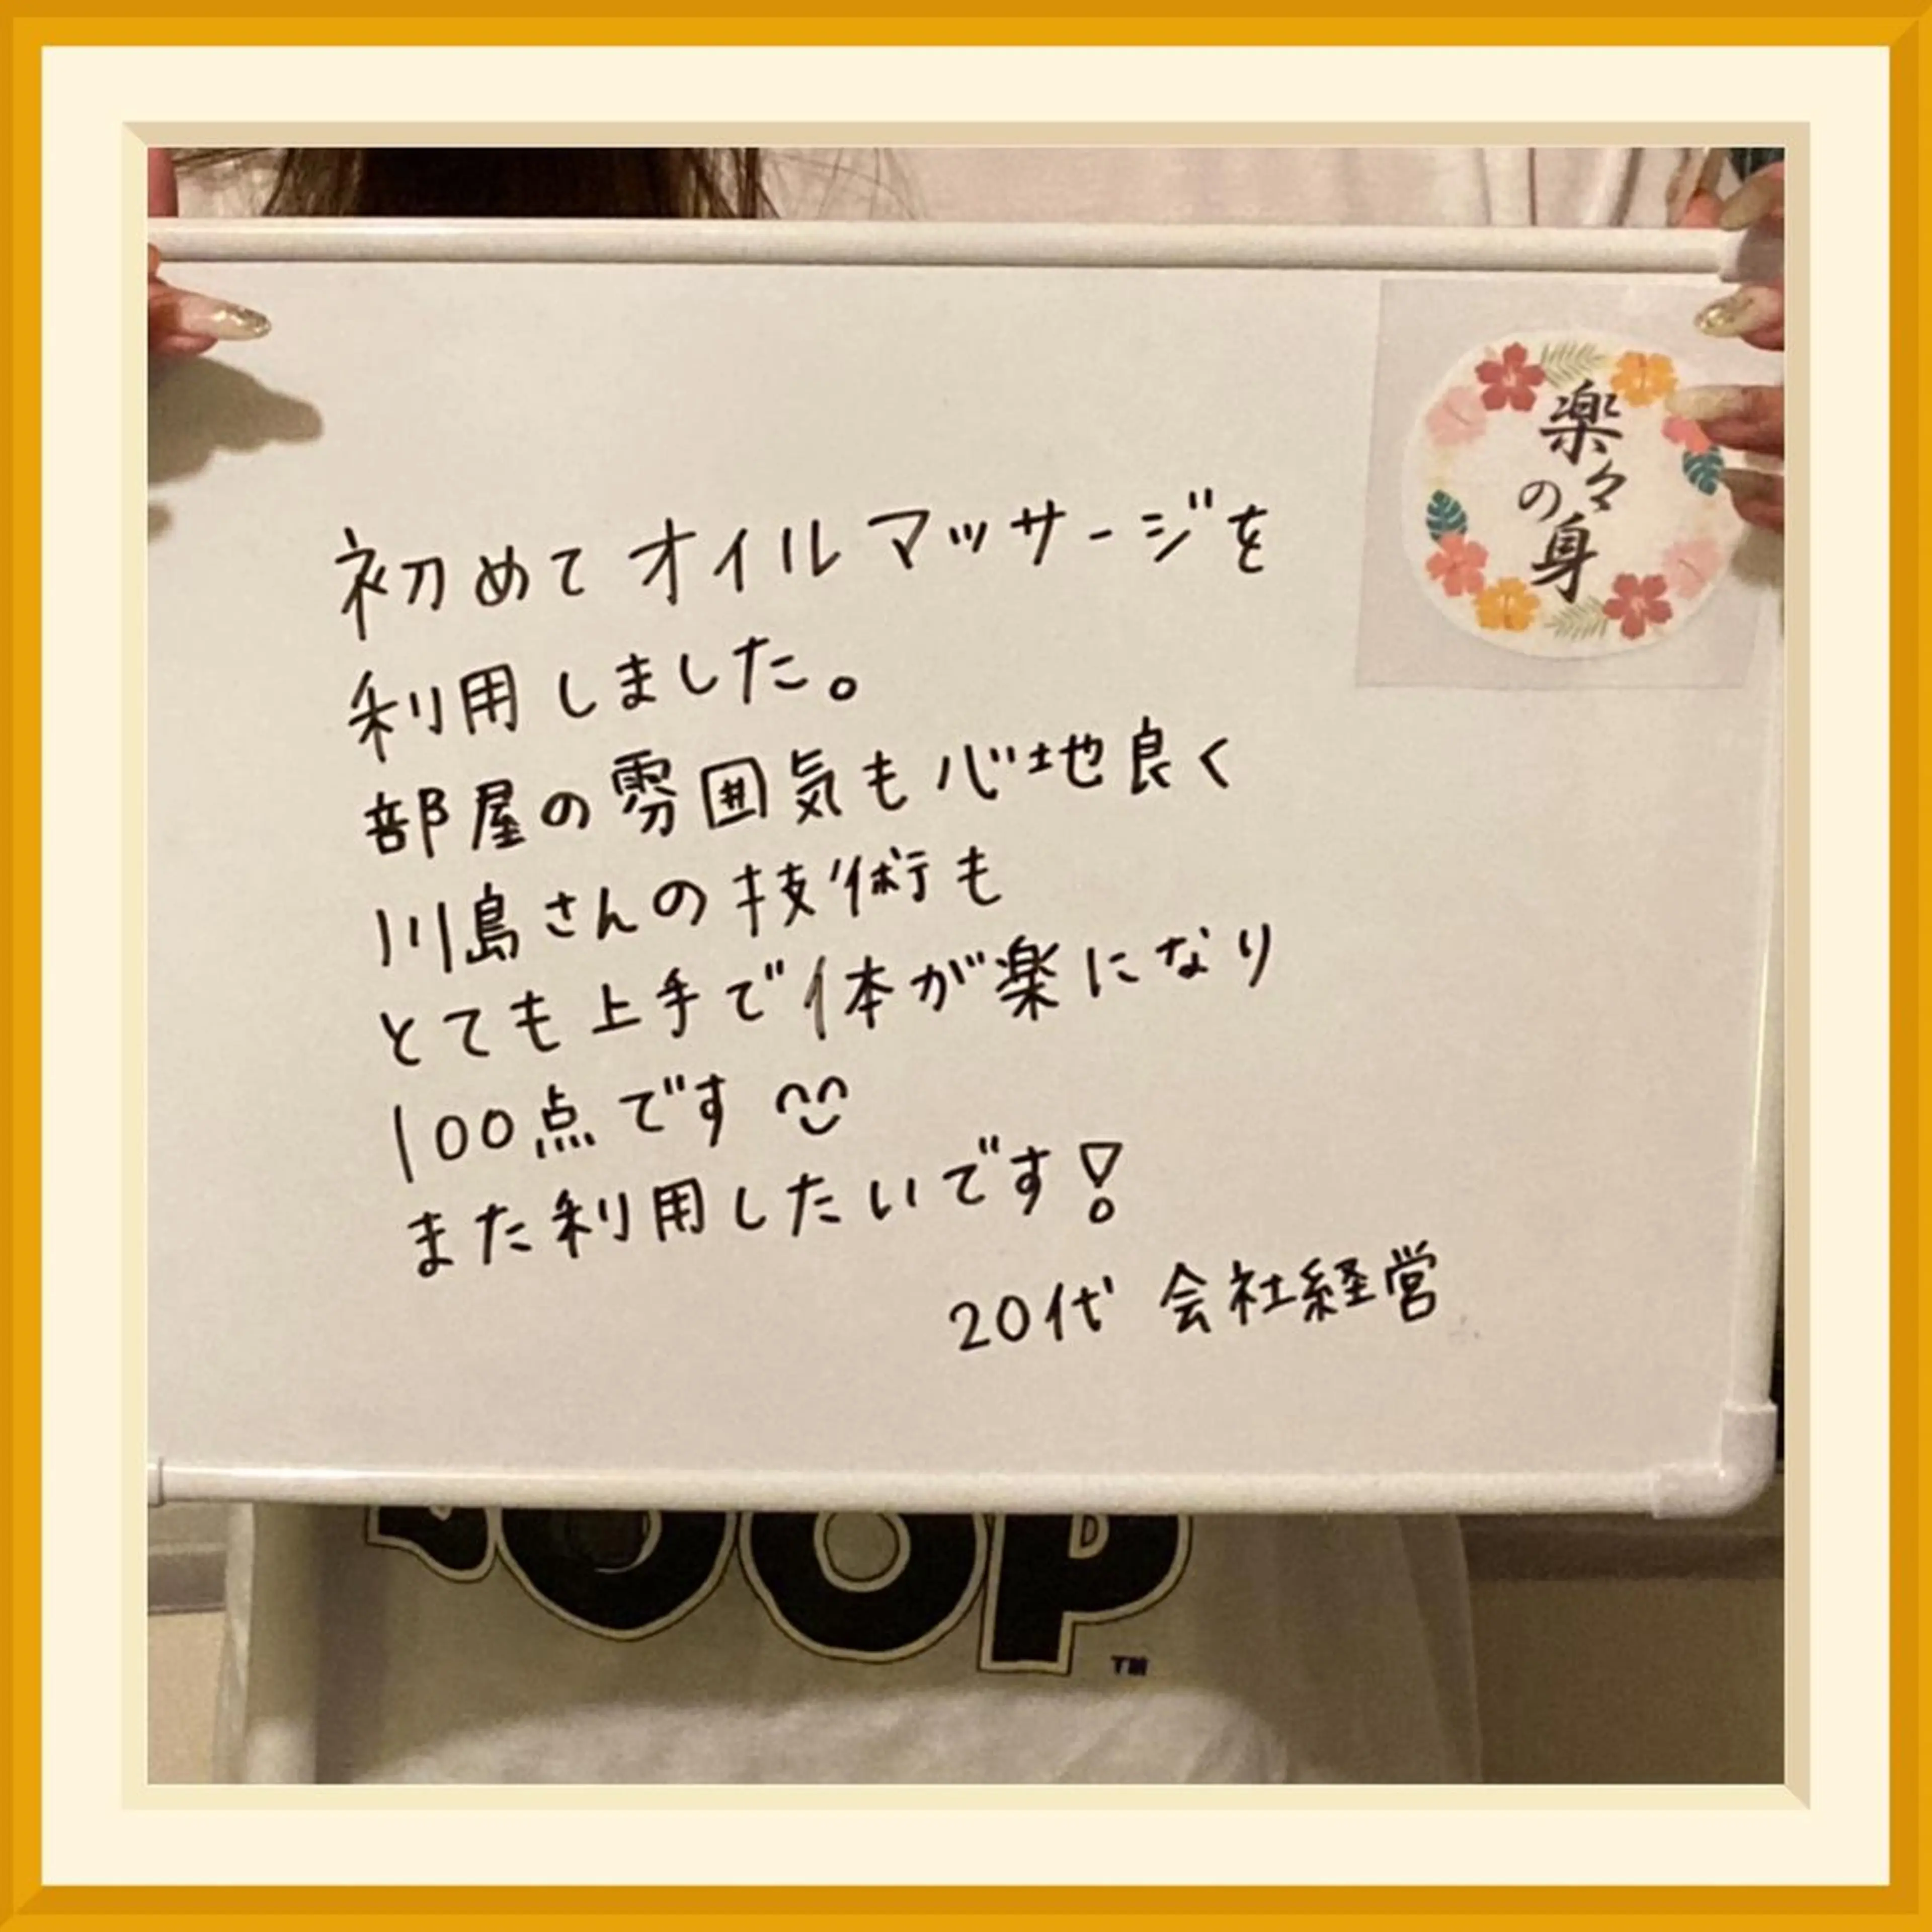 楽々の身
初めてオイルマッサージを
利用しました。
部屋の雰囲気も心地良く
川島さんの技術も
とても上手で体が楽になり
100点です
また利用したいです!
20代 会社経営
OOP
TM